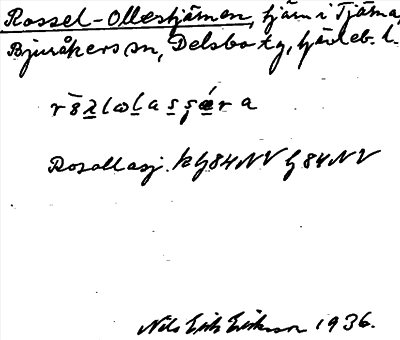 Rossel-Ollestjärnen, tjärn i Tjärna,
Bjuråkers sn, Delsbo tg, Gävleb. l.
Rosollasj. k G84NV G84NV
Nils Erik Eriksson 1936.